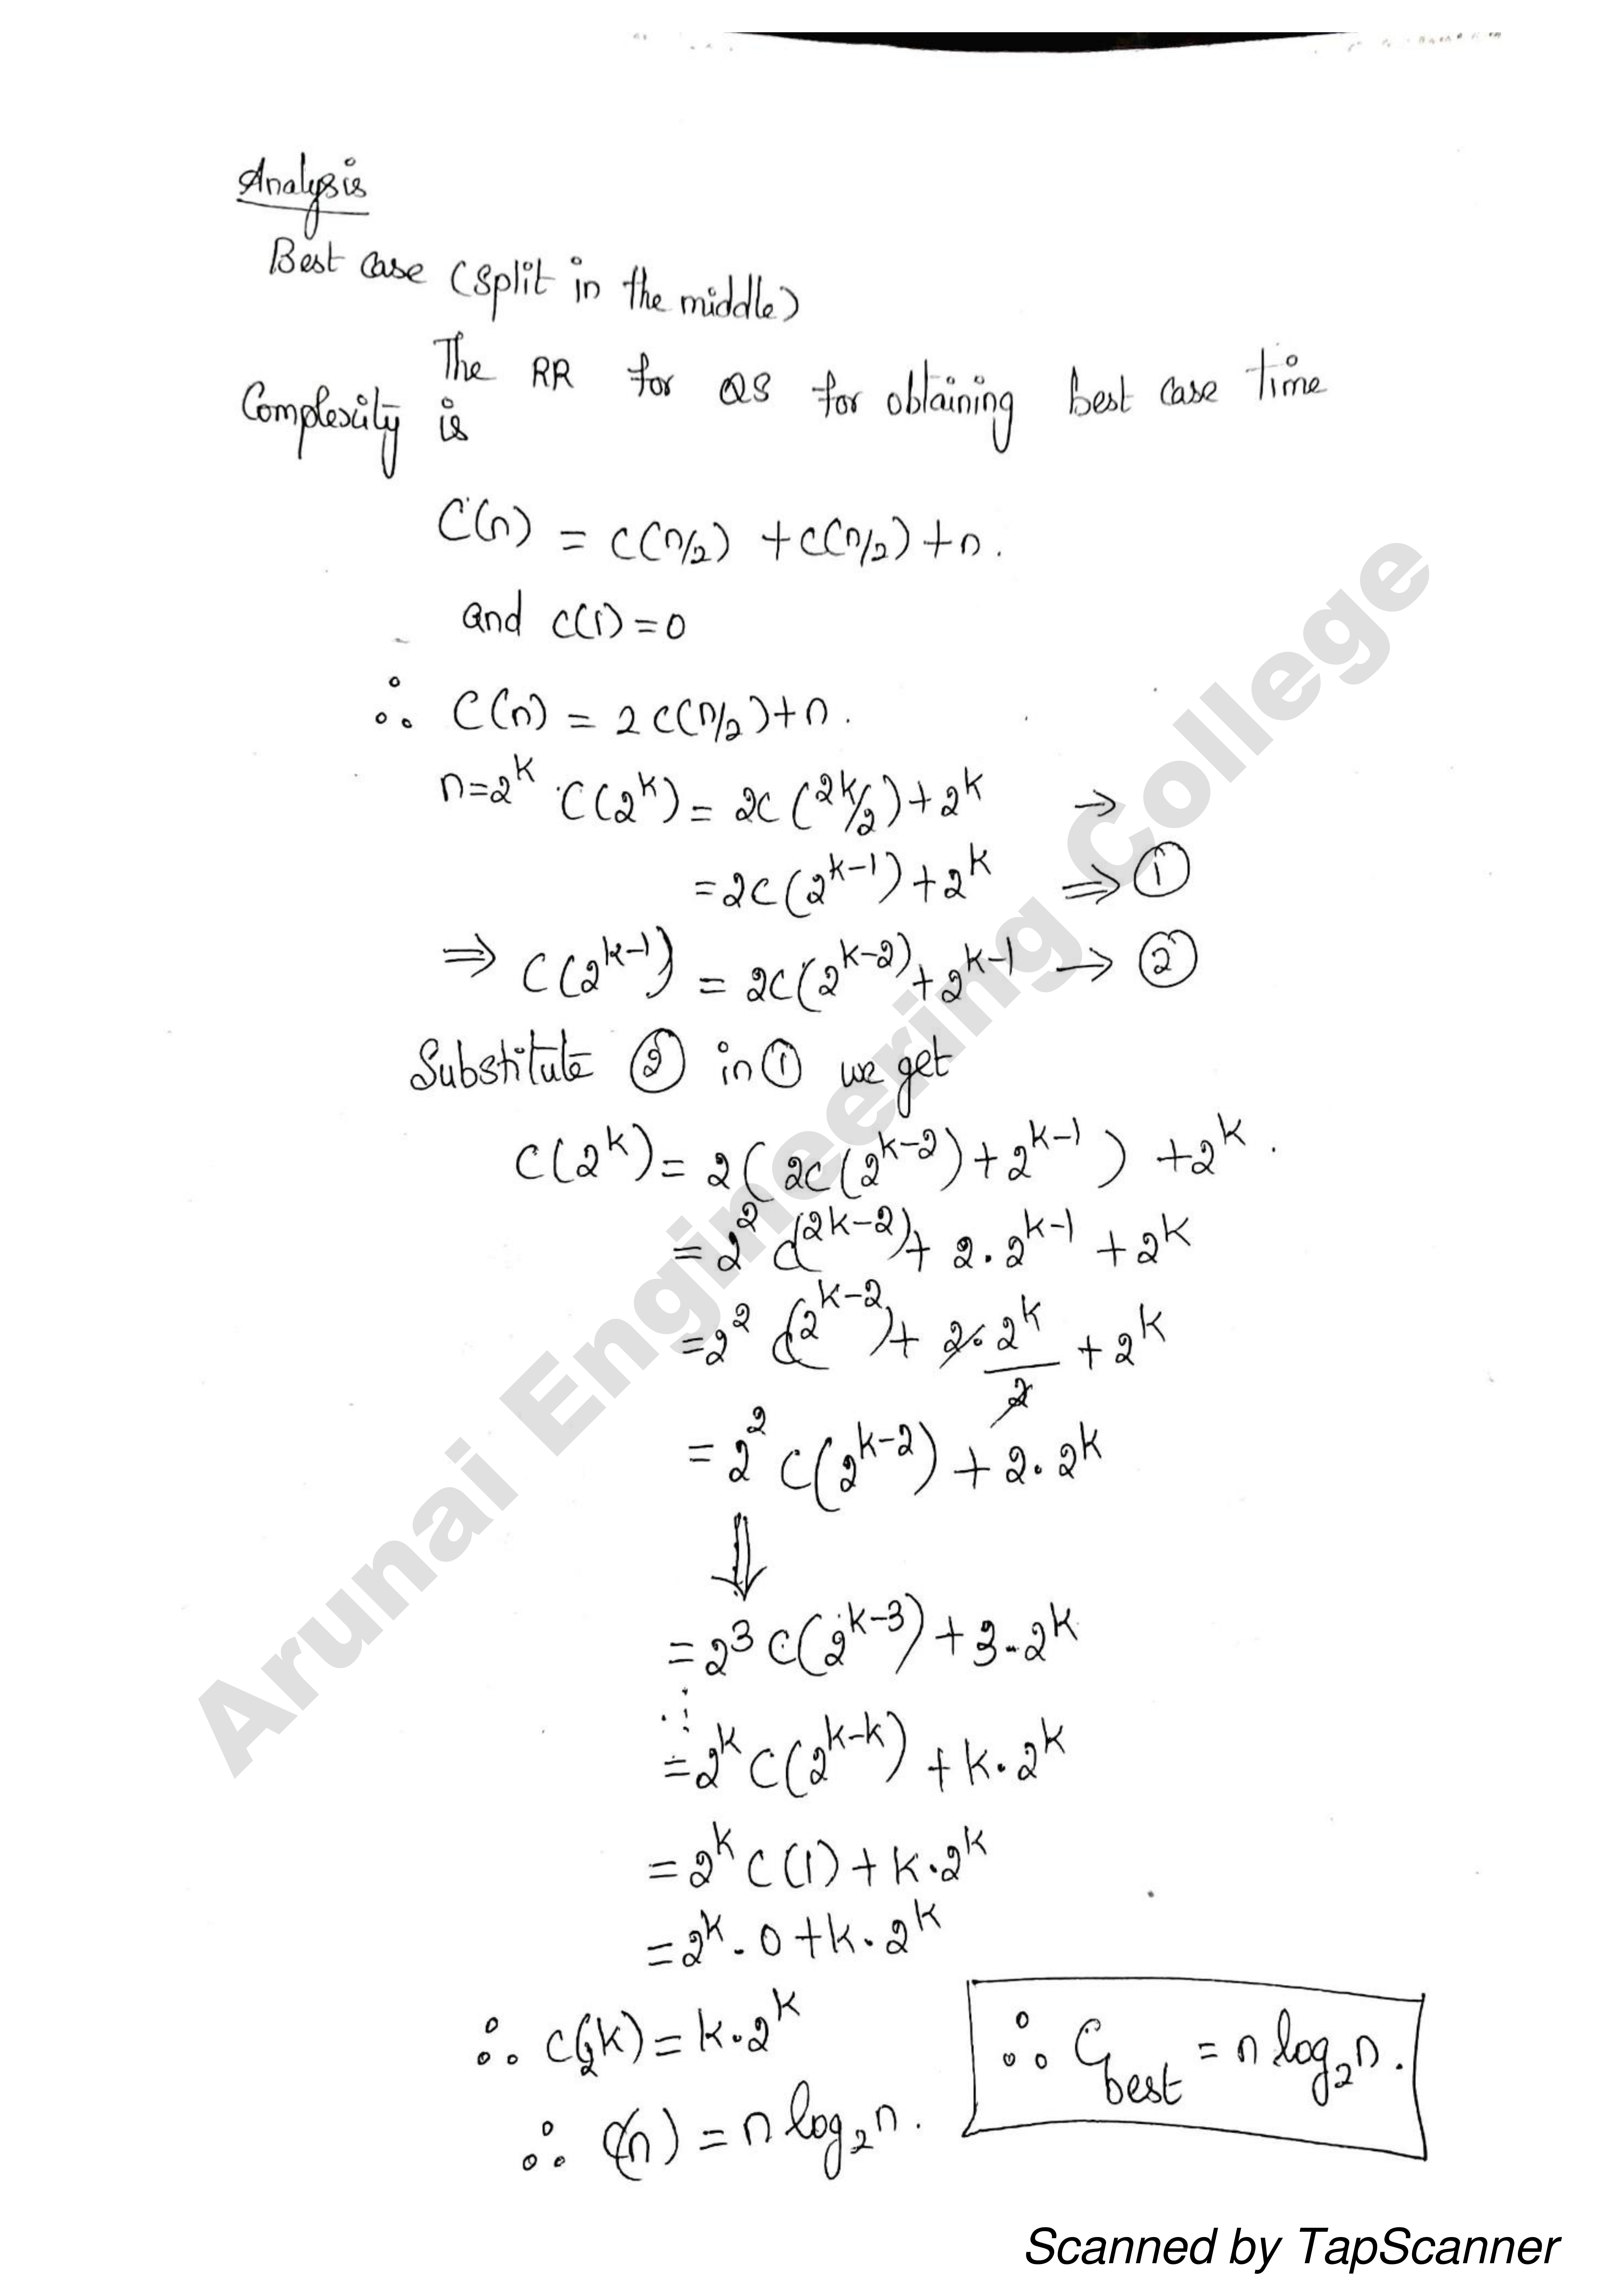 Analysis
Best case (split in the middle)
The RR for QS for obtaining best case time
Complexity is
C(n) = C(n/2) + C(n/2) + n.
and C(1) = 0
∴ C(n) = 2C(n/2) + n.
n=2^k C(2^k) = 2C(2^k/2) + 2^k →
= 2C(2^{k-1}) + 2^k ⇒ ①
⇒ C(2^{k-1}) = 2C(2^{k-2}) + 2^{k-1} → ②
Substitute ② in ① we get
C(2^k) = 2(2C(2^{k-2}) + 2^{k-1}) + 2^k.
= 2^2 C(2^{k-2}) + 2.2^{k-1} + 2^k
= 2^2 C(2^{k-2}) + 2.2^k/2 + 2^k
= 2^2 C(2^{k-2}) + 2.2^k
⇓
= 2^3 C(2^{k-3}) + 3.2^k
⋮
= 2^k C(2^{k-k}) + k.2^k
= 2^k C(1) + k.2^k
= 2^k . 0 + k.2^k
∴ C(2^k) = k.2^k
∴ C(n) = n log₂n.
∴ C_best = n log₂n.
Arunai Engineering College
Scanned by TapScanner